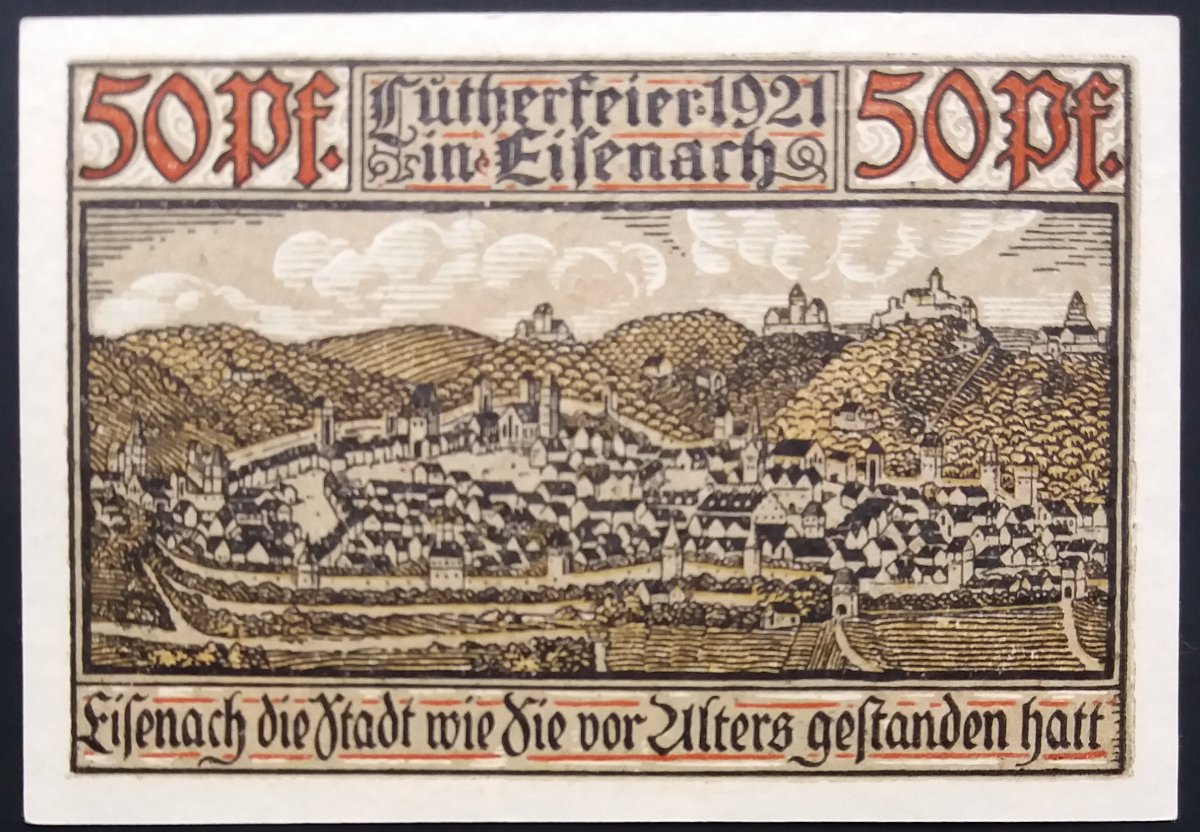 50 Pf.
Lutherfeier·1921
in Eiſenach
50 Pf.
Eiſenach die Stadt wie Sie vor Alters geſtanden hatt